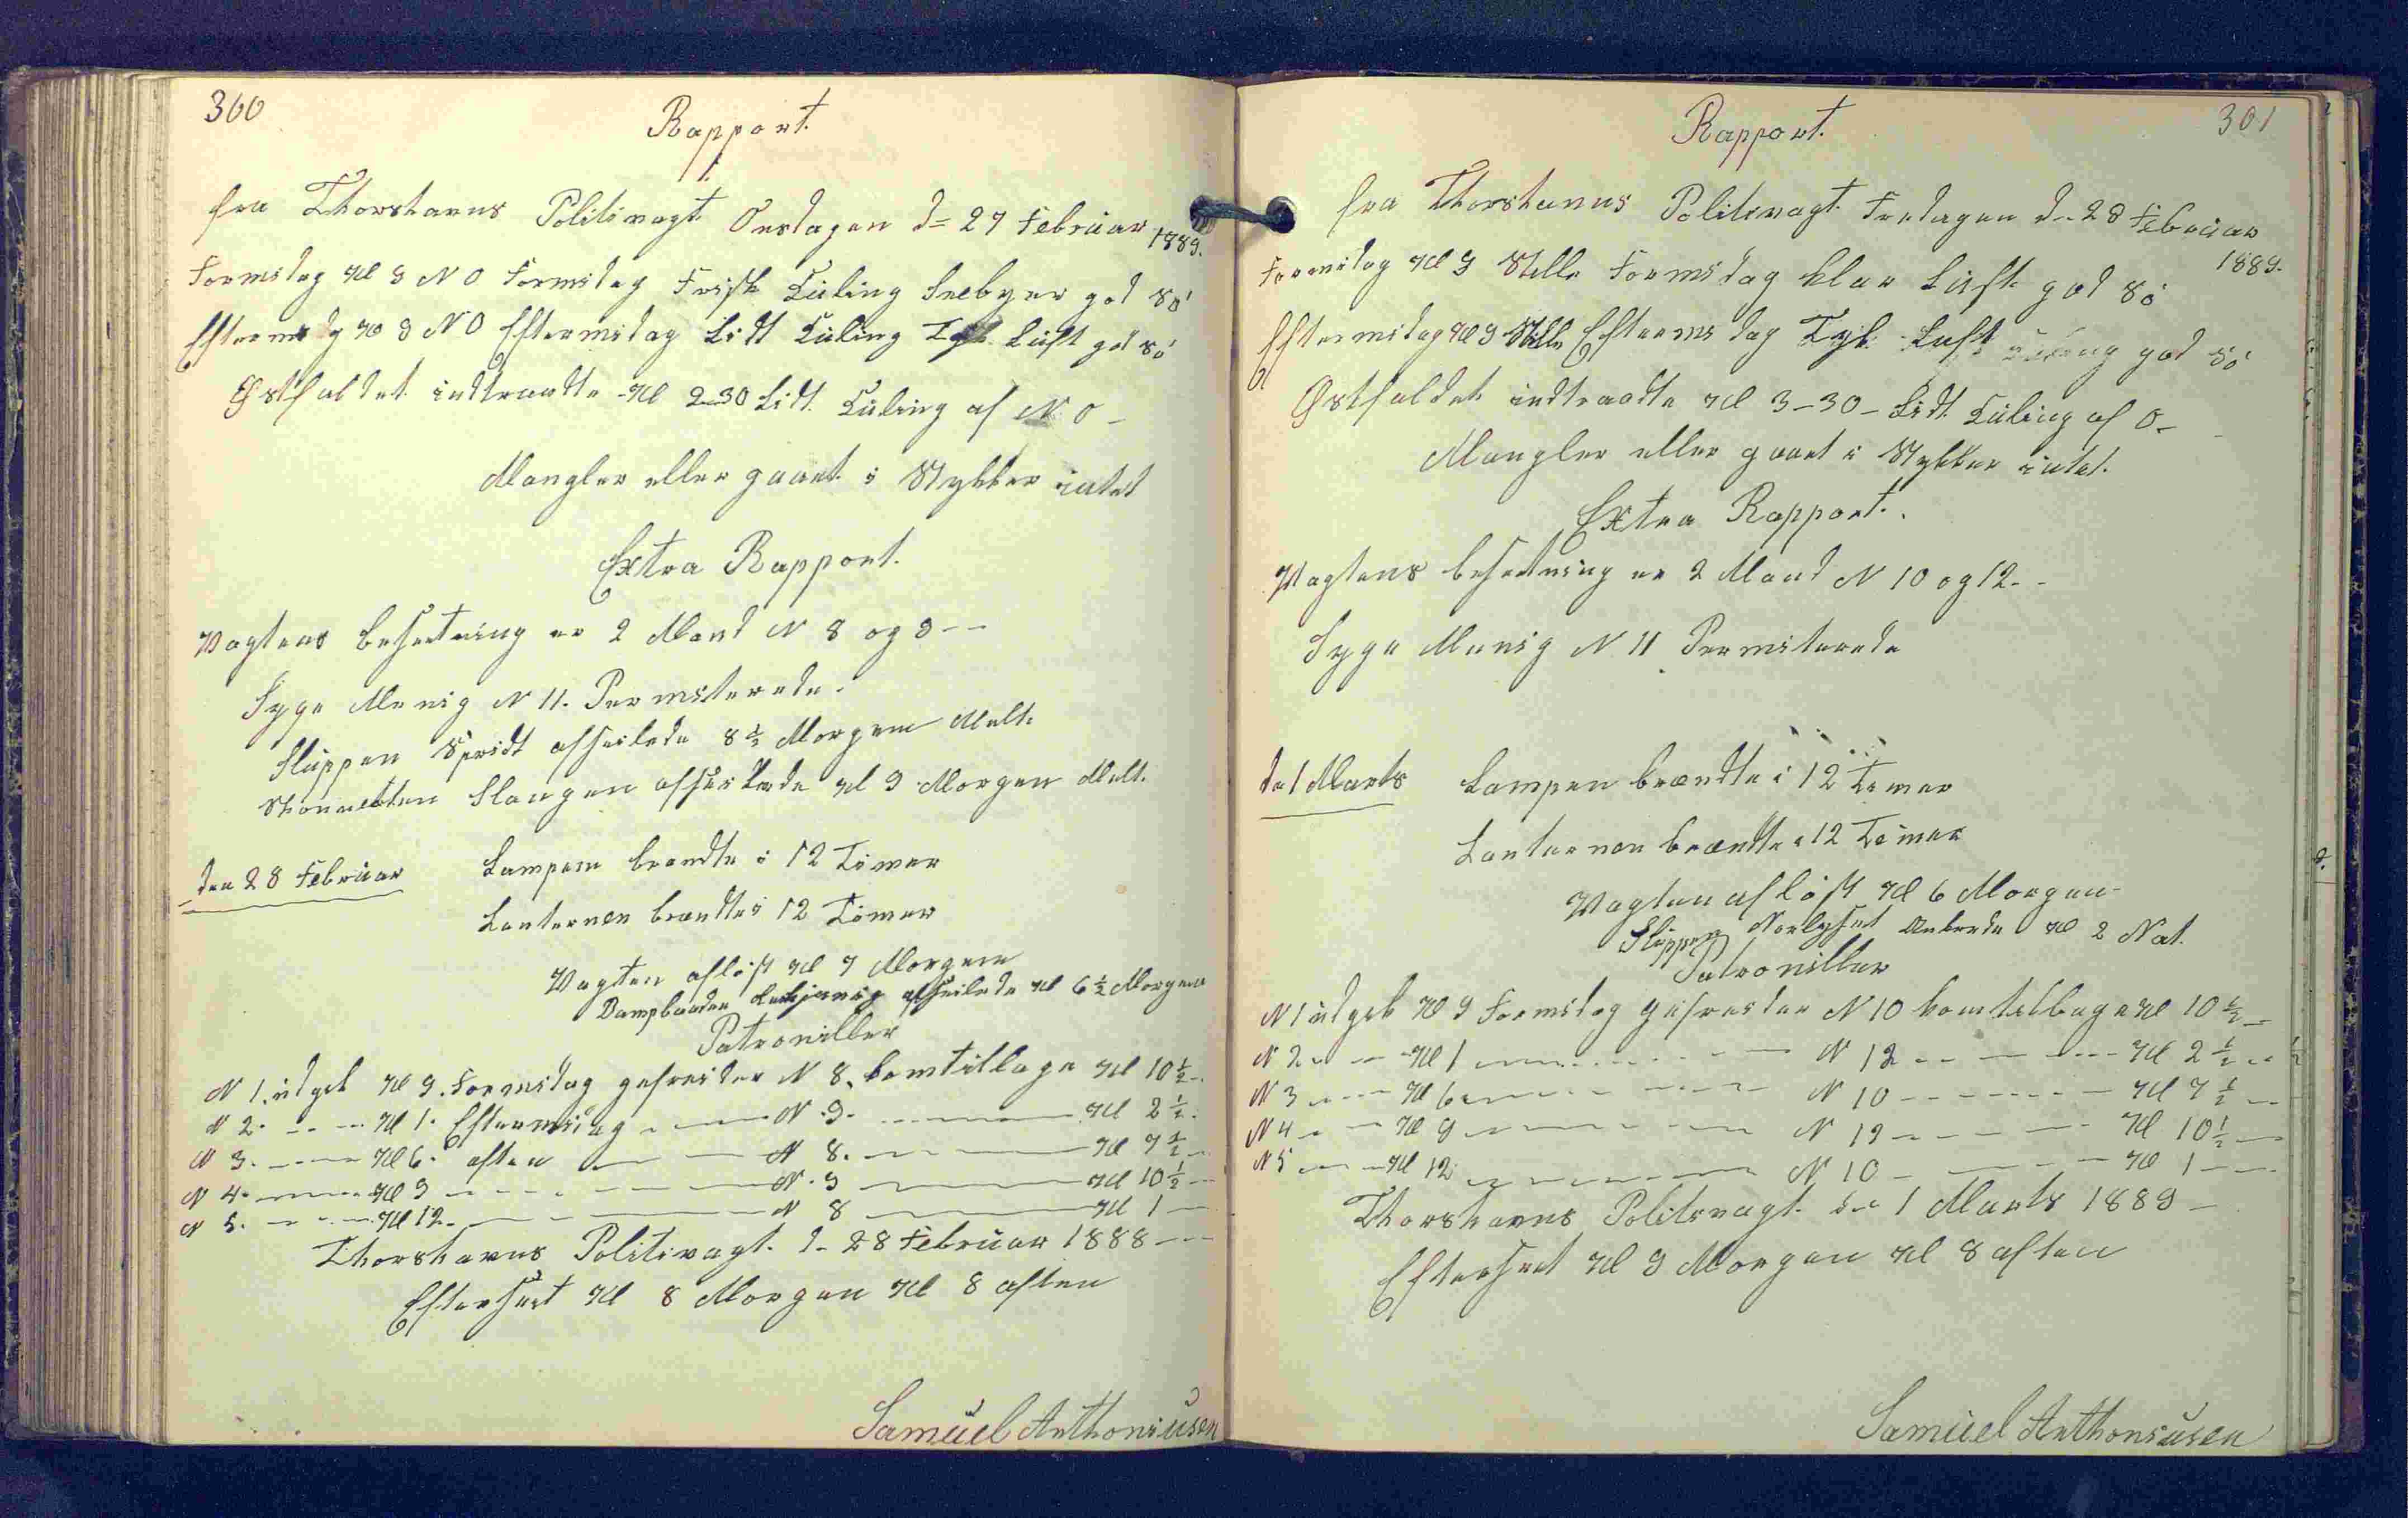 300
Rapport.
fra Thorshavns Politivagt Onsdagen d= 27 Februar 1889.
Formidag Kl 9 N O Formidag Frisk Kuling Snebyer god Sø
Eftermidg Kl 3 N O Eftermidag Lidt Kuling Tyk Luft god Sø
Østfaldet indtraadte Kl 2-30 Lidt Kuling af N O -
Mangler eller gaaet i Stykker intet
Extra Rapport.
Vagtens besætning er 2 Mand N 8 og 9 --
Syge Menig N 11. Permiterede.
Sluppen Spridt afseilede 8½ Morgen Melt.
Skonnerten Slangen afseilede Kl 9 Morgen Melt.
den 28 Februar Lampen brændte i 12 Timer
Lanternen brændte i 12 Timer
Vagten afløst Kl 7 Morgen
Dampbaaden afseilede Kl 6½ Morgen
Patroviller
N 1. udgik Kl 9. Formidag gefreider N 8. kom tilbage Kl 10½ -
N 2. -- -- Kl 1. Eftermidag - -- N. 9. -- Kl 2½.
N 3. -- Kl 6. aften -- -- N 8. -- Kl 7½ -
N 4. -- Kl 9 -- -- N. 9 -- Kl 10½ -
N 5. -- Kl 12 - -- -- N 8 -- Kl 1 -
Thorshavns Politivagt. d- 28 Februar 1888 --
Efterset Kl 8 Morgen Kl 8 aften
Samuel Anthoniusen
301
Rapport.
fra Thorshavns Politivagt. Fredagen d- 28 Februar
1889.
Formidag Kl 9 Stille Formidag klar Luft god Sø
Eftermidag Kl 3 Stille Eftermidag Tyk Luft god Sø
Østfaldet indtraadte Kl 3-30 - Lidt Kuling af O -
Mangler eller gaaet i Stykker intet.
Extra Rapport.
Vagtens besætning er 2 Mand N 10 og 12 --
Syge Menig N 11 Permiterede
de 1 Marts Lampen brændte i 12 Timer
Lanternen brændte i 12 Timer
Vagten afløst Kl 6 Morgen -
Sluppen Norlyset Ankrede Kl 2 Nat.
Patroviller
N 1 udgik Kl 9 Formidag gefreider N 10 kom tilbage Kl 10½ -
N 2 -- -- Kl 1 -- -- N 12 -- -- Kl 2½ --
N 3 -- -- Kl 6 -- -- N 10 -- -- Kl 7½ --
N 4 -- -- Kl 9 -- -- N 12 -- -- Kl 10½ --
N 5 -- -- Kl 12 -- -- N 10 -- -- Kl 1 --
Thorshavns Politivagt. den 1 Marts 1889 -
Efterset Kl 9 Morgen Kl 8 aften
Samuel Anthoniusen